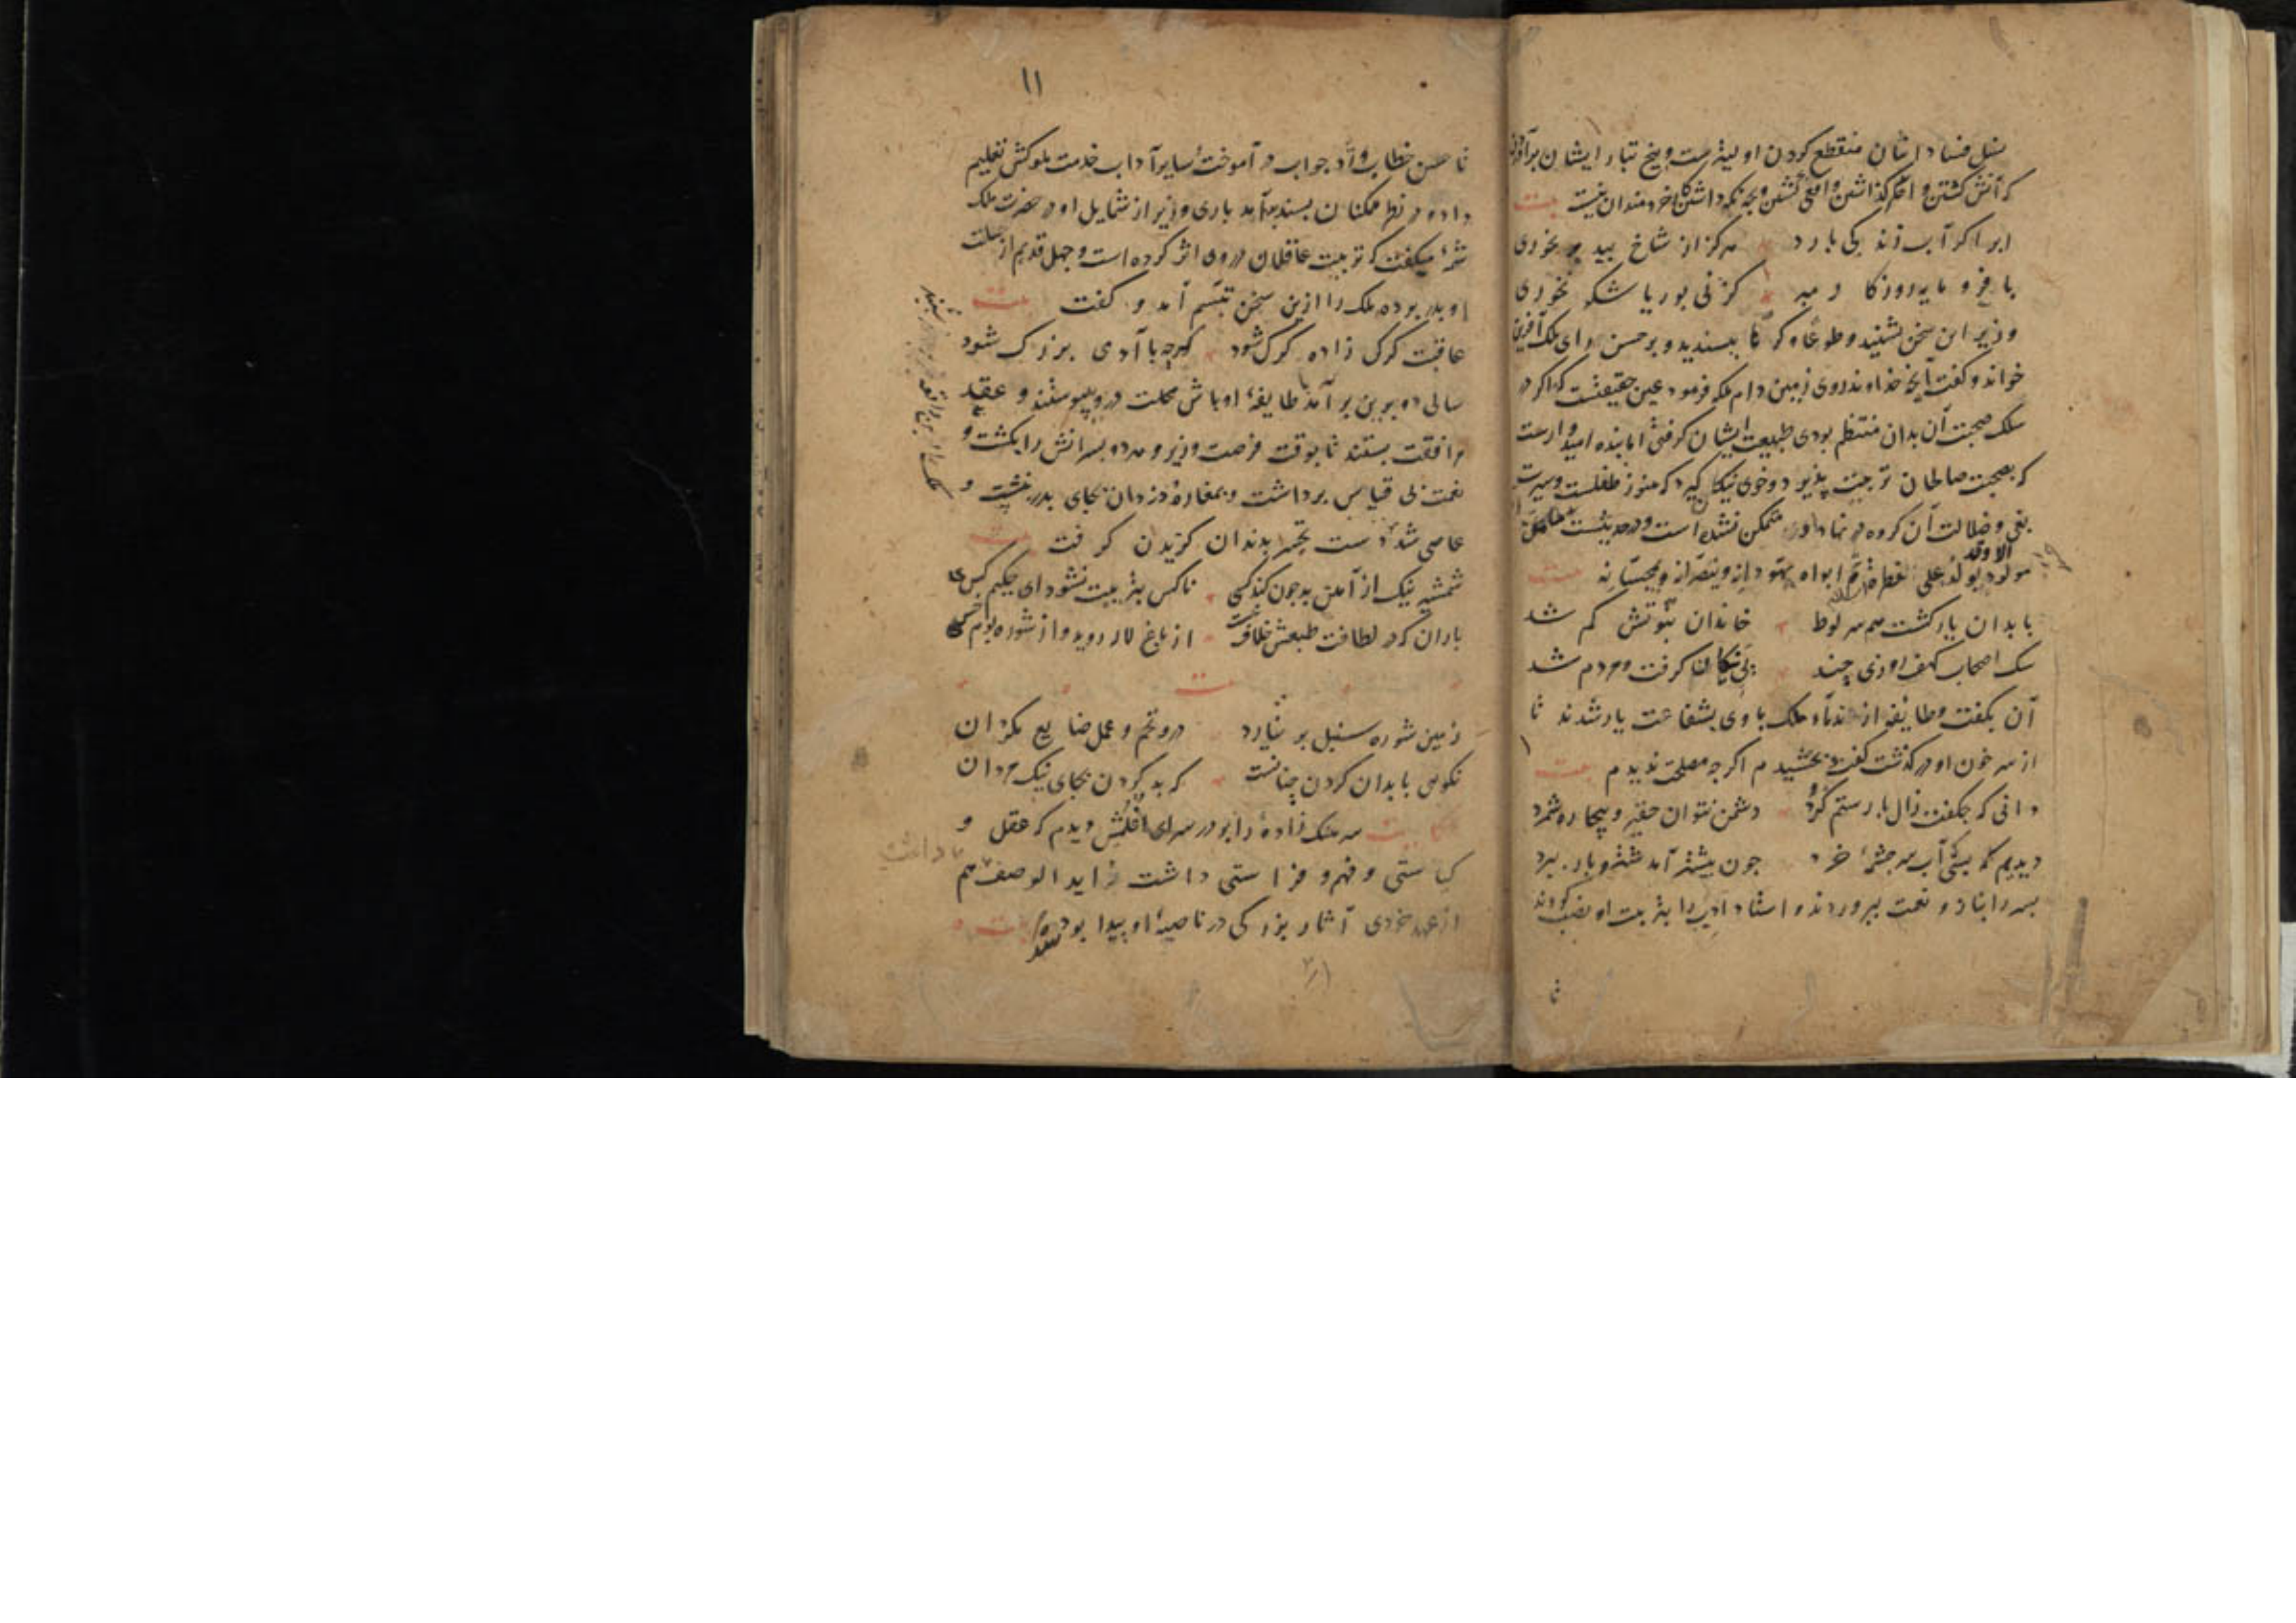 نسل فساد ایشان منقطع کردن اولیترست و بیخ تبار ایشان برآوردن
که آتش کشتن و اخکر کذاشتن و افعی کشتن و بچه نکه داشتن کار خردمندان نیست بیت
ابر اکر آب زندکی بارد هرکز از شاخ بید بر نخوری
با فرومایه روزکار مبر کز نی بوریا شکر نخوری
وزیر این سخن بشنید و طوعا و کرها بپسندید و بر حسن رای ملک آفرین
خواند و کفت آنچه خداوند روی زمین دام ملکه فرمود عین حقیقتست که اکر در
سلک صحبت آن بدان منتظم بودی طبیعت ایشان کرفتی اما بنده امیدوارست
که بصحبت صالحان تربیت پذیرد و خوی نیکان کیرد که هنوز طفلست و سیرت
بغی و ضلالت آن کروه در نهاد او متمکن نشده است و در حدیثست ما من
مولود الا وقد یولد علی الفطرة ثم ابواه یهودانه و ینصرانه و یمجسانه بیت
با بدان یار کشت همسر لوط خاندان نبوتش کم شد
سک اصحاب کهف روزی چند پی نیکان کرفت و مردم شد
آن بکفت و طایفه از ندماء ملک با وی بشفاعت یار شدند تا
از سر خون او درکذشت کفت بخشیدم اکرچه مصلحت ندیدم بیت
دانی که چکفت زال با رستم کرد دشمن نتوان حقیر و بیچاره شمرد
دیدیم که بسی آب سر چشمه خرد چون بیشتر آمد شتر و بار ببرد
پسر را بناز و نعمت بپروردند و استاد ادیب را بتربیت او نصب کردند
تا
۱۱
تا حسن خطاب و رد جواب در آموخت و سایر آداب خدمت ملوکش تعلیم
داده در نظر همکنان پسندیده آمد باری وزیر از شمایل او در حضرت ملک
شمه میکفت که تربیت عاقلان در وی اثر کرده است و جهل قدیم از جبلت
او بدر برده ملک را ازین سخن تبسم آمد و کفت بیت
عاقبت کرک زاده کرک شود کرچه با آدمی بزرک شود
سالی دو برین برآمد طایفه اوباش محلت درو پیوستند و عقد
مرافقت بستند تا بوقت فرصت وزیر و هر دو پسرانش را بکشت و
نعمت بی قیاس برداشت و بمغاره دزدان بجای پدر نشست و
عاصی شد دست تحیر بدندان کزیدن کرفت بیت
شمشیر نیک از آهن بد چون کند کسی ناکس بتربیت نشود ای حکیم کس
باران که در لطافت طبعش خلاف نیست از باغ لاله روید و از شوره بوم خس
بیت
زمین شوره سنبل بر نیارد درو تخم و عمل ضایع مکردان
نکویی با بدان کردن چنانست که بد کردن بجای نیک مردان
حکایت سرهنک زاده را بر در سرای اغلمش دیدم که عقل و
کیاستی و فهم و فراستی داشت زاید الوصف هم
از عهد خردی آثار بزرکی در ناصیه او پیدا بود بیت